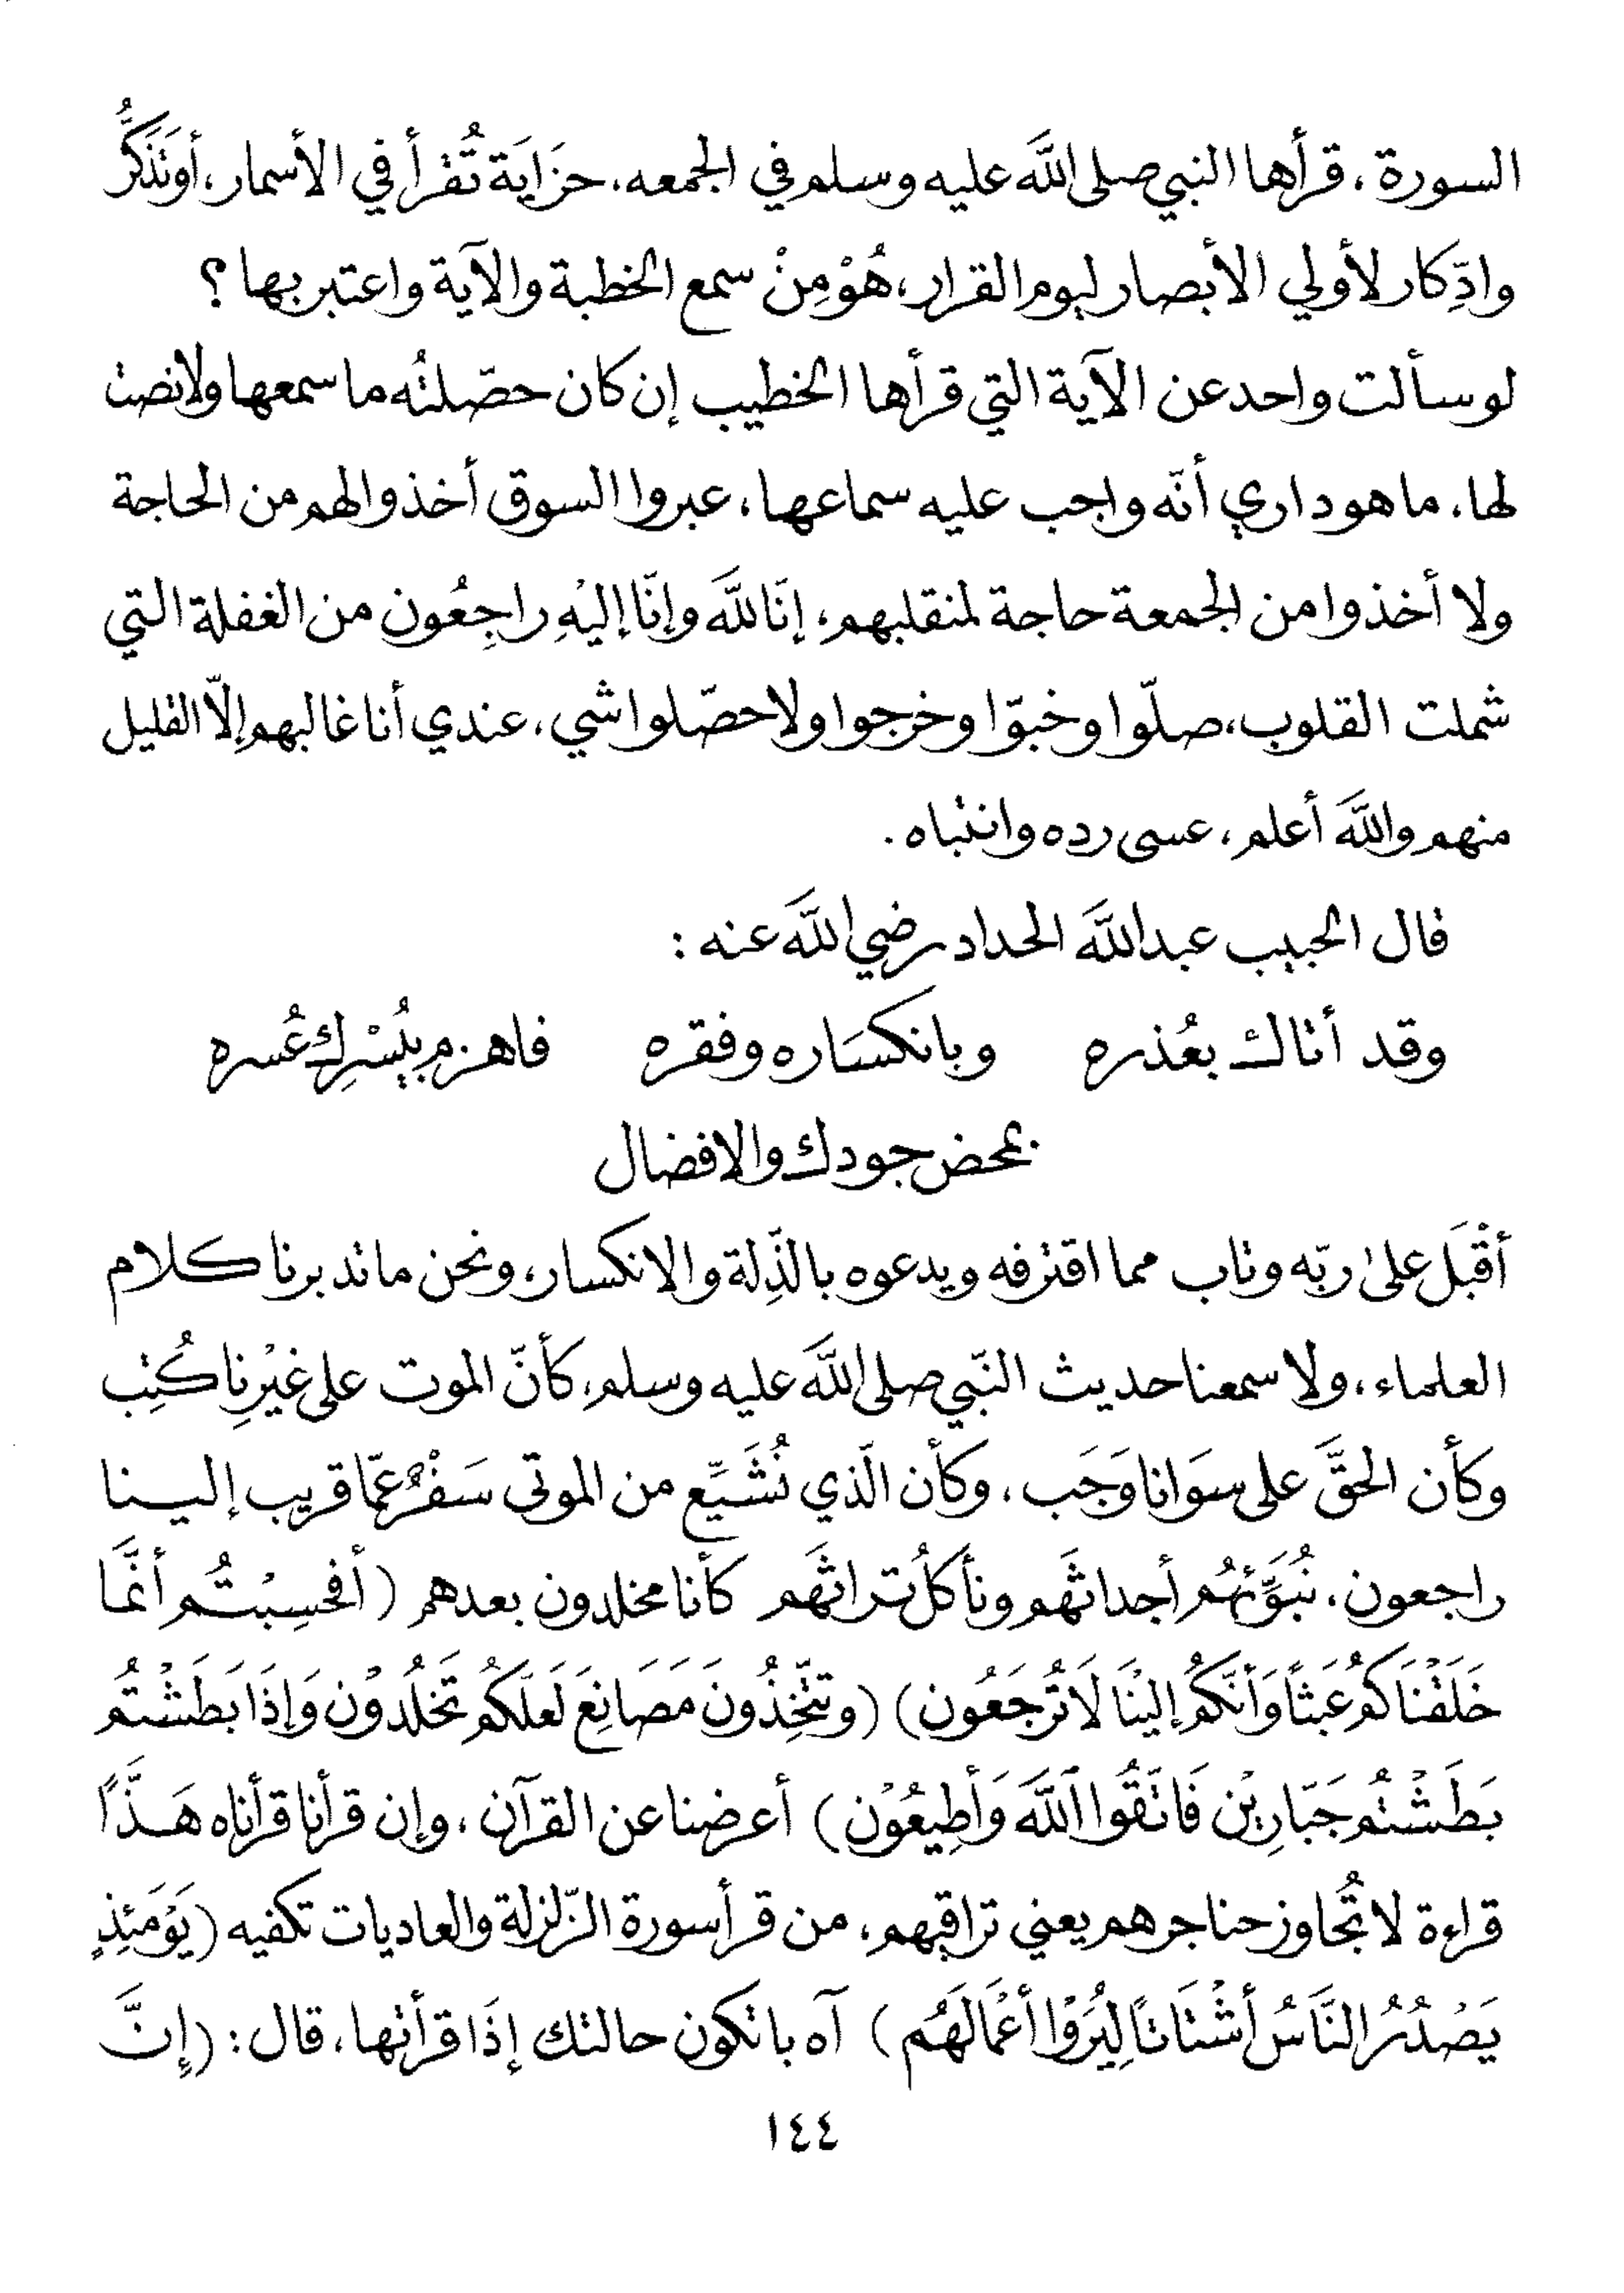 السورة، قرأها النبي صلى اللَّه عليه وسلم في الجمعه، حزَايَة تُقرأ في الأسمار، أو تَذَكُّر
وادِّكار لأولي الأبصار ليوم القرار، هُوْ مِنْ سمع الخطبة والآية واعتبر بها ؟
لو سألت واحد عن الآية التي قرأها الخطيب إن كان حصّلتُه ما سمعها ولا نصت
لها، ما هو داري أنّه واجب عليه سماعها، عبروا السوق أخذوا لهم من الحاجة
ولا أخذوا من الجمعة حاجة لمنقلبهم، إنَّا للَّه وإنَّا إليْهِ راجِعُون من الغفلة التي
شملت القلوب، صلّوا وخبّوا وخرجوا ولا حصّلوا شي، عندي أنا غالبهم إلّا القليل
منهم واللَّه أعلم، عسى رده وانتباه .
قال الحبيب عبداللَّه الحداد رضي اللَّه عنه :
وقد أتاك بعُذره وبانكسَاره وفقره فاهزم بيُسْرِك عُسره
بمحض جودك والافضال
أقْبَل علىٰ ربّه وتاب مما اقترفه ويدعوه بالذِّلة والانكسار، ونحن ما تدبرنا كلام
العلماء، ولا سمعنا حديث النّبي صلى اللَّه عليه وسلم، كأنّ الموت على غيْرِنا كُتِب
وكأن الحقَّ على سوَانا وَجَب، وكأن الّذي نُشَيِّع من الموتى سَفْرٌ عمّا قريب إلينا
راجعون، نُبَوِّئهُم أجداثَهم ونأكلُ تراثَهم كأنا مخلدون بعدهم (أفحسِبْتُم أنَّمَا
خَلَقْنَاكُمْ عَبَثاً وَأنَّكُمْ إليْنَا لَا تُرْجَعُون) (وتتَّخِذُونَ مَصَانِعَ لَعَلَّكُمْ تَخلُدُوْن وَإذَا بَطَشْتُم
بَطَشْتُم جَبّارِيْن فَاتَقُوا اللَّهَ وَأطِيعُوْنِ) أعرضنا عن القرآن، وإن قرأنا قرأناه هَذّاً
قراءة لا تُجاوز حناجرهم يعني تراقيهم، من قرأ سورة الزّلزلة والعاديات تكفيه (يَوْمَئِذٍ
يَصْدُرُ النَّاسُ أشْتَاتاً لِيُرَوْا أعْمَالَهُم) آه باتكون حالتك إذَا قرأتها، قال : (إنَّ
١٤٤